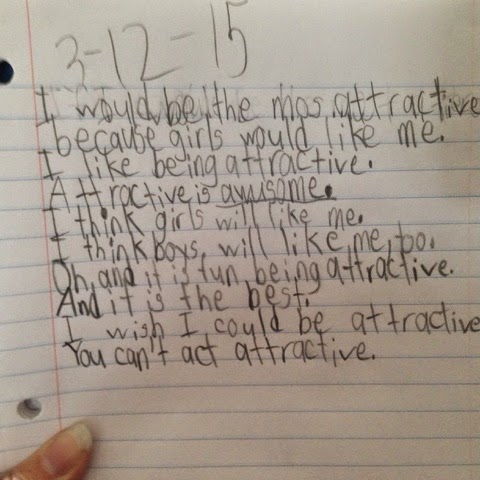 3-12-15
I would be the mos attractive
because girls would like me.
I like being attractive.
Attractive is awusome.
I think girls will like me.
I think boys will like me, too.
Oh, and it is fun being attractive.
And it is the best.
I wish I could be attractive
You can't act attractive.